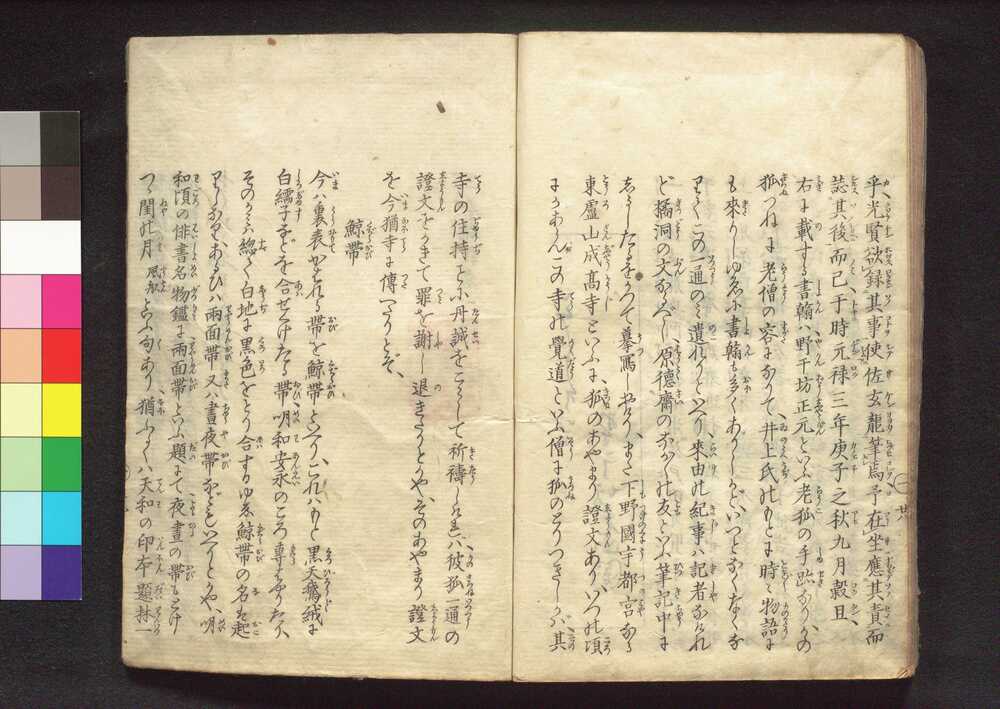 乎、光賢欲録其事使佐玄龍筆焉予在坐應其責而
誌其後而已于時元禄三年庚子之秋九月穀旦、
右に載する書翰ハ野干坊正元といふ老狐の手跡なり、かの
狐つねに老僧の容になりて、井上氏のもとに時々物語に
も來りしゆゑに書翰も多くありしかどいつとなくなくな
りてこの一通のミ遺れりといへり、來由の紀事ハ記者なけれ
ど橘洞の文なるべし、原徳齋のながれの友といふ筆記中に
しるしたるをかりて摹冩しおけり、また下野國宇都宮なる
東盧山成髙寺といふに、狐のあやまり證文あり、いつの頃
にかありけんこの寺の覺道といふ僧に狐のとりつきしが、其
寺の住持ことに丹誠をこらして祈祷しけれバ彼狐一通の
證文をかきて罪を謝し退きけりとかや、そのあやまり證文
を今猶寺に傳へたりとぞ、
鯨帶
今ハ裏表かはれる帶を鯨帶といへり、これハもと黒天鵞絨に
白繻子などを合せけたる帶、明和安永のころ専はやりたり、
そのかミ總て白地に黒色をとり合するゆゑ鯨帶の名は起
りしなるべし、あるひハ兩面帶又ハ晝夜帶などもいへりとかや、明
和頃の俳書名物鑑に兩面帶といふ題にて夜晝の帶もとけ
つゝ閏の月 風和 といふ句あり、猶ふるくハ天和の印本題林一